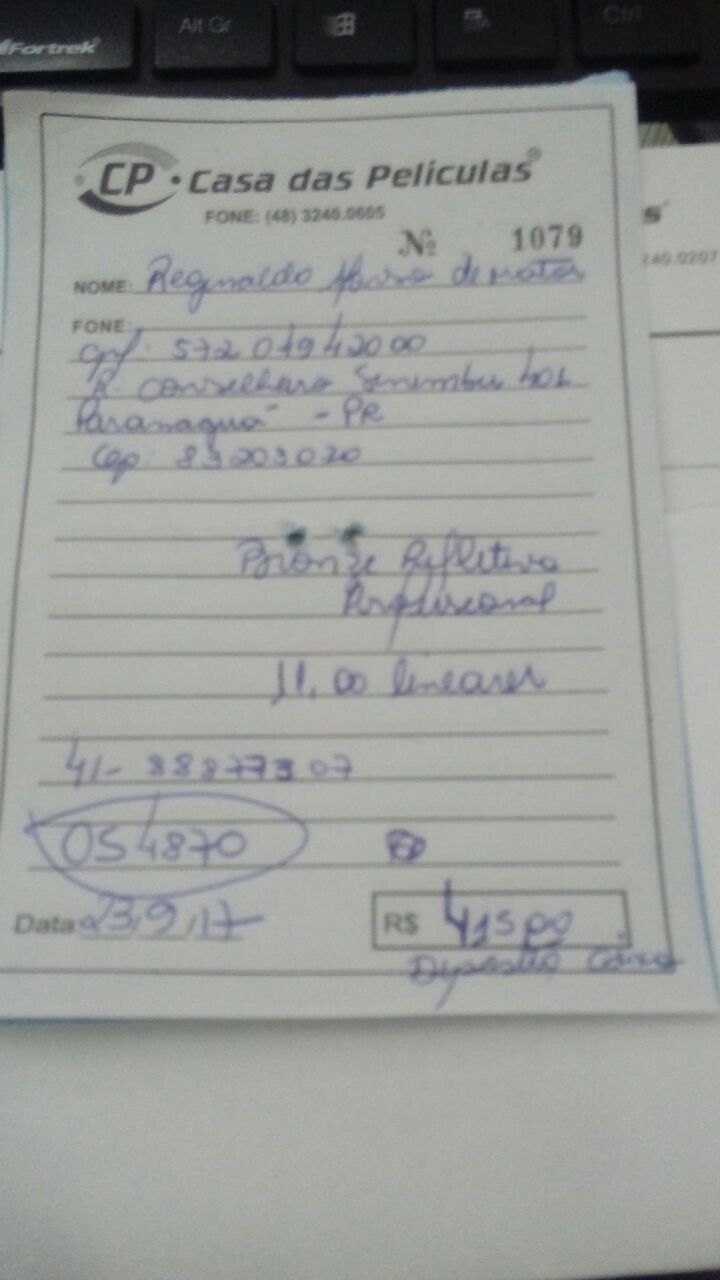 Fortrek
Alt Gr
Ctrl
CP • Casa das Películas®
FONE: (48) 3240.0605
Nº 1079
NOME: Reginaldo de Matos
FONE:
cpf: 572 019 42000
R. Conselheiro Sinimbu 401
Paranaguá - PR
Cep: 83203020
Bronze Refletivo
Profissional
11,00 lineares
41- 88877307
OS 4870
Data 23,9,17
R$ 415,00
Deposito
240.0207